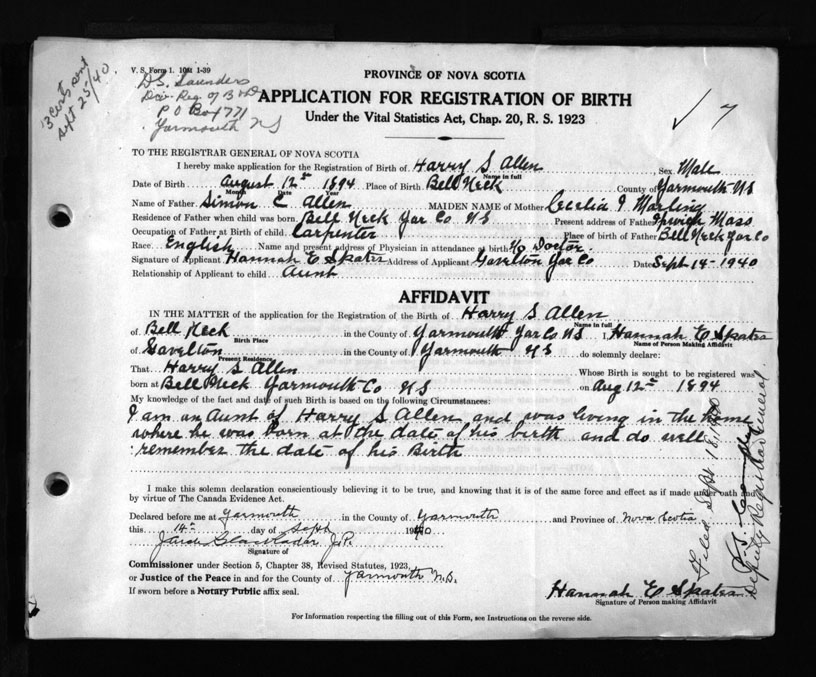 V. S. Form 1. 10M 1-39
D.S. Saunders
Div. Reg. of B & D
P O Box 771
Yarmouth NS
3 Certs sent
Sept 25/40
PROVINCE OF NOVA SCOTIA
APPLICATION FOR REGISTRATION OF BIRTH
Under the Vital Statistics Act, Chap. 20, R. S. 1923
✓ 7
TO THE REGISTRAR GENERAL OF NOVA SCOTIA
I hereby make application for the Registration of Birth of Harry S Allen Sex Male
Name in full
Date of Birth August 12th 1894 Place of Birth Bell Neck County of Yarmouth NS
Month Day Year
Name of Father Simon C Allen MAIDEN NAME of Mother Cecelia I Marling
Residence of Father when child was born Bell Neck Yar Co NS Present address of Father Ipswich Mass
Occupation of Father at Birth of child Carpenter Place of birth of Father Bell Neck Yar Co
Race English Name and present address of Physician in attendance at birth No Doctor.
Signature of Applicant Hannah E Skates Address of Applicant Gavelton Yar Co Date Sept 14 - 1940
Relationship of Applicant to child Aunt
AFFIDAVIT
IN THE MATTER of the application for the Registration of the Birth of Harry S Allen
Name in full
of Bell Neck in the County of Yarmouth Yar Co NS I, Hannah E Skates
Birth Place Name of Person Making Affidavit
of Gavelton in the County of Yarmouth NS do solemnly declare:
Present Residence
That Harry S Allen Whose Birth is sought to be registered was
born at Bell Neck Yarmouth Co NS on Aug 12th 1894
My knowledge of the fact and date of such Birth is based on the following Circumstances:
I am an Aunt of Harry S Allen and was living in the home
where he was born at the date of his birth and do well
remember the date of his Birth
I make this solemn declaration conscientiously believing it to be true, and knowing that it is of the same force and effect as if made under oath and
by virtue of The Canada Evidence Act.
Declared before me at Yarmouth in the County of Yarmouth and Province of Nova Scotia
this 14th day of Sept 1940
J.P.
Signature of
Commissioner under Section 5, Chapter 38, Revised Statutes, 1923,
or Justice of the Peace in and for the County of Yarmouth N.S.
If sworn before a Notary Public affix seal.
Hannah E Skates
Signature of Person making Affidavit
Filed Sept 18, 1940
Deputy Registrar General
For Information respecting the filling out of this Form, see Instructions on the reverse side.